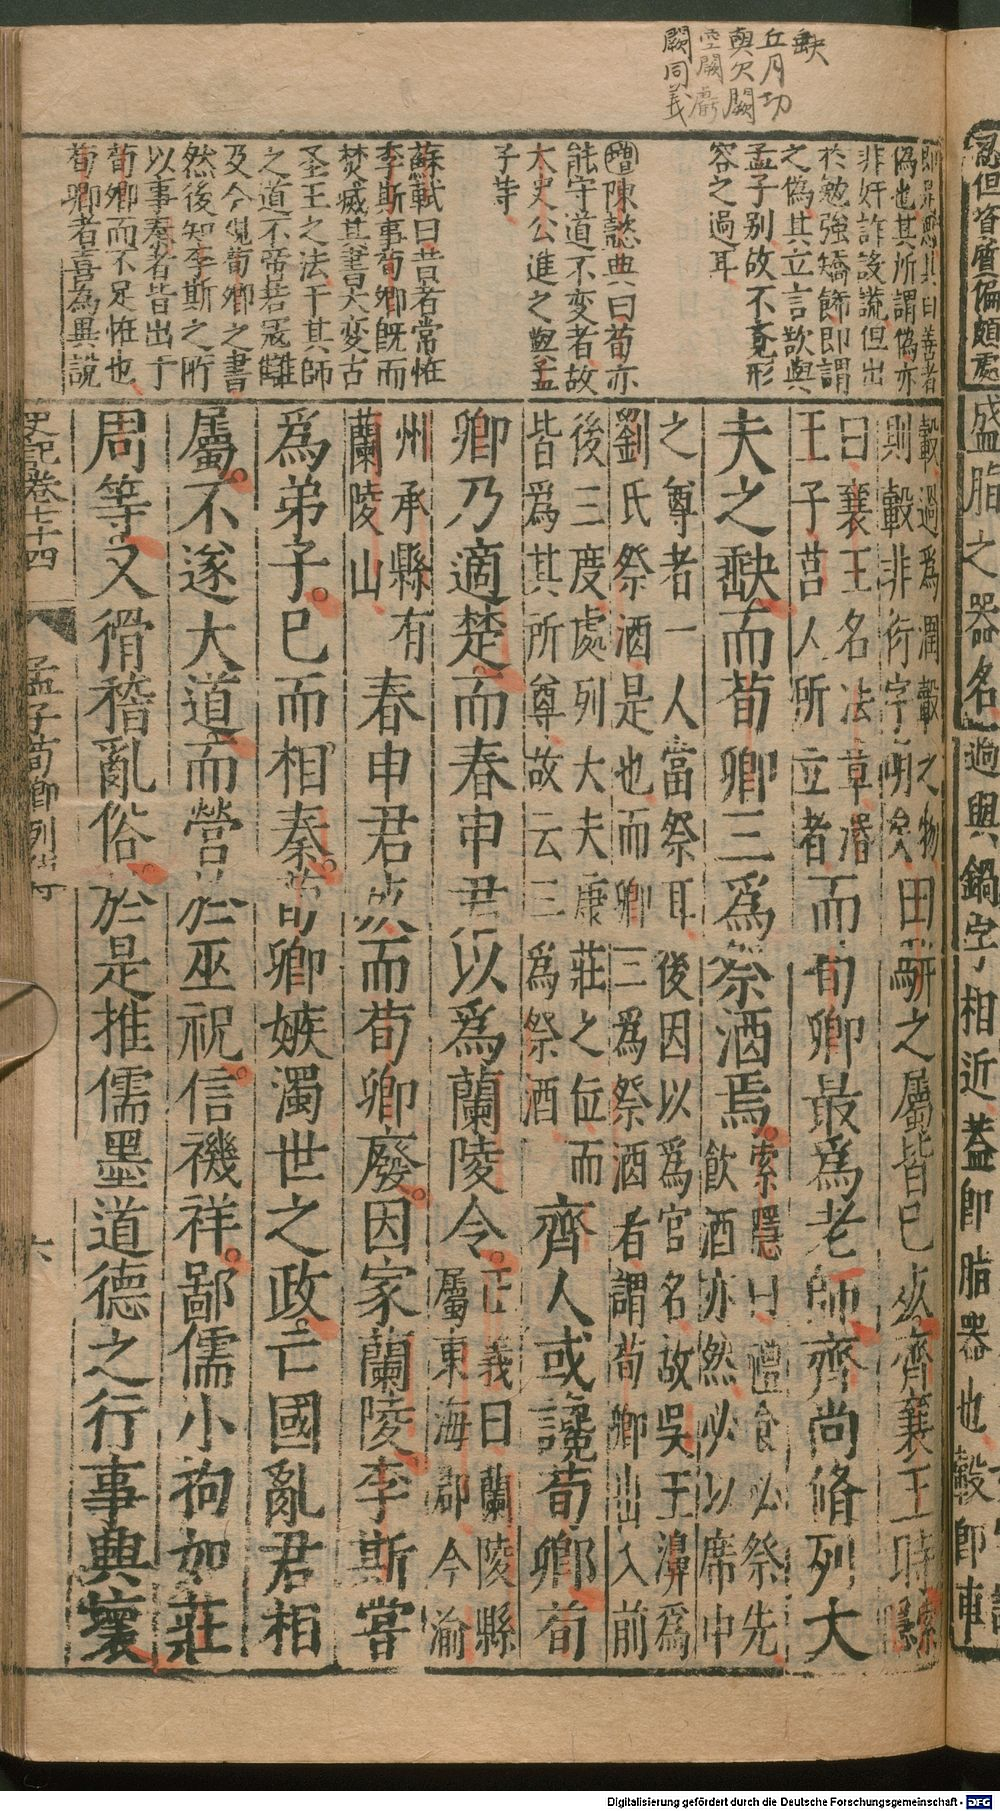 缺
丘月切
與欠闕
空闕虧
闕同義
偽也其所謂偽亦
非奸詐設謊但出
於勉強矯飾即謂
之偽其立言欲與
孟子别故不竟形
容之過耳
增陳懿典曰荀亦
能守道不变者故
太史公進之與孟
子等
蘇軾曰昔者常恠
李斯事荀卿既而
焚滅其書大变古
聖王之法于其師
之道不啻若冦讎
及今覌荀卿之書
然後知李斯之所
以事秦者皆出于
荀卿而不足恠也
荀卿者喜為異說
轂過爲潤轂之物
則轂非衍字明矣
田駢之屬皆巳死齊襄王時
索隱
曰襄王名法章湣
王子莒人所立者
而荀卿最爲老師齊尚脩列大
夫之缺而荀卿三爲祭酒焉
索隱曰禮食必祭先
飲酒亦然必以席中
之尊者一人當祭耳後因以爲官名故吳王濞爲
劉氏祭酒是也而卿三爲祭酒者謂荀卿出入前
後三度處列大夫康莊之位而
皆爲其所尊故云三爲祭酒
齊人或讒荀卿荀
卿乃適楚而春申君以爲蘭陵令
正義曰蘭陵縣
屬東海郡今渝
州承縣有
蘭陵山
春申君死而荀卿廢因家蘭陵李斯嘗
爲弟子巳而相秦荀卿嫉濁世之政亡國亂君相
屬不遂大道而營於巫祝信禨祥鄙儒小拘如莊
周等又猾稽亂俗於是推儒墨道德之行事興壞
史記卷七十四
孟子荀卿列傳
六
盛脂之器名
過與鍋字相近蓋即脂器也轂即車
Digitalisierung gefördert durch die Deutsche Forschungsgemeinschaft - DFG